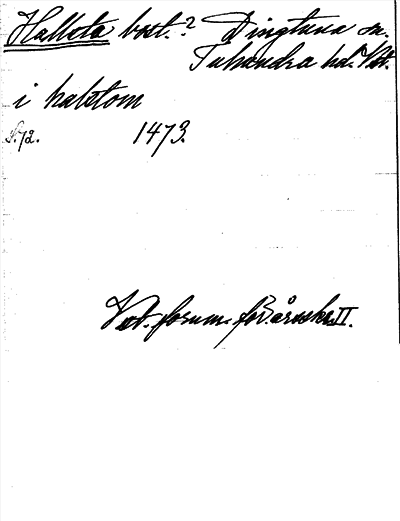 Hallsta bost.? Dingtuna sn.
Tuhundra hd. Vstm.
i halstom
S. 72. 1473.
Vst. fornm. för. årsskr. II.